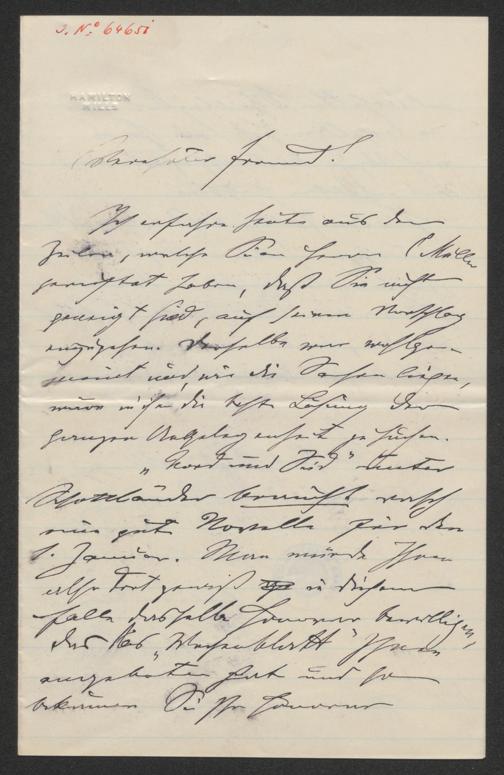 J. Nº 64651
HAMILTON
MILLS
Verehrter Freund!
Ich erfahre heute aus den
Zeilen, welche Sie an Herrn Müller
gerichtet haben, daß Sie nicht
geneigt sind, auf seinen Vorschlag
einzugehen. Derselbe war wohlge-
meint und, wie die Sachen liegen,
wäre in ihm die beste Lösung der
ganzen Angelegenheit zu suchen.
„Nord und Süd" unter
Schottländer braucht rasch
eine gute Novelle für den
1. Januar. Man würde Ihnen
also dort gewiß in diesem
Falle dasselbe Honorar bewilligen,
das das „Wochenblatt" Ihnen
angeboten hat und so
bekämen Sie Ihr Honorar